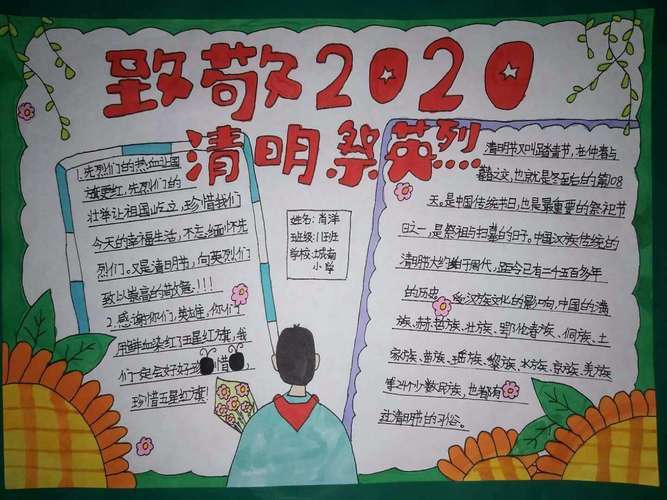 致敬2020
清明祭英烈
1.先烈们的热血让国
旗更红,先烈们的
壮举让祖国屹立,珍惜我们
今天的幸福生活,不忘缅怀先
烈们。又是清明节,向英烈们
致以崇高的敬意!!!
2.感谢你们,英雄,你们
用鲜血染红了五星红旗,我
们一定会好好珍惜
珍惜五星红旗!
姓名:肖洋
班级:1班
学校:城南
小学
清明节又叫踏青节,在仲春与
暮春之交,也就是冬至后的第108
天。是中国传统节日,也是最重要的祭祀节
日之一,是祭祖与扫墓的日子。中国汉族传统的
清明节大约始于周代,距今已有二千五百多年
的历史 汉族文化的影响,中国的满
族、赫哲族、壮族、鄂伦春族、侗族、土
家族、苗族、瑶族、黎族、水族、京族、羌族
等24个少数民族,也都有
过清明节的习俗。